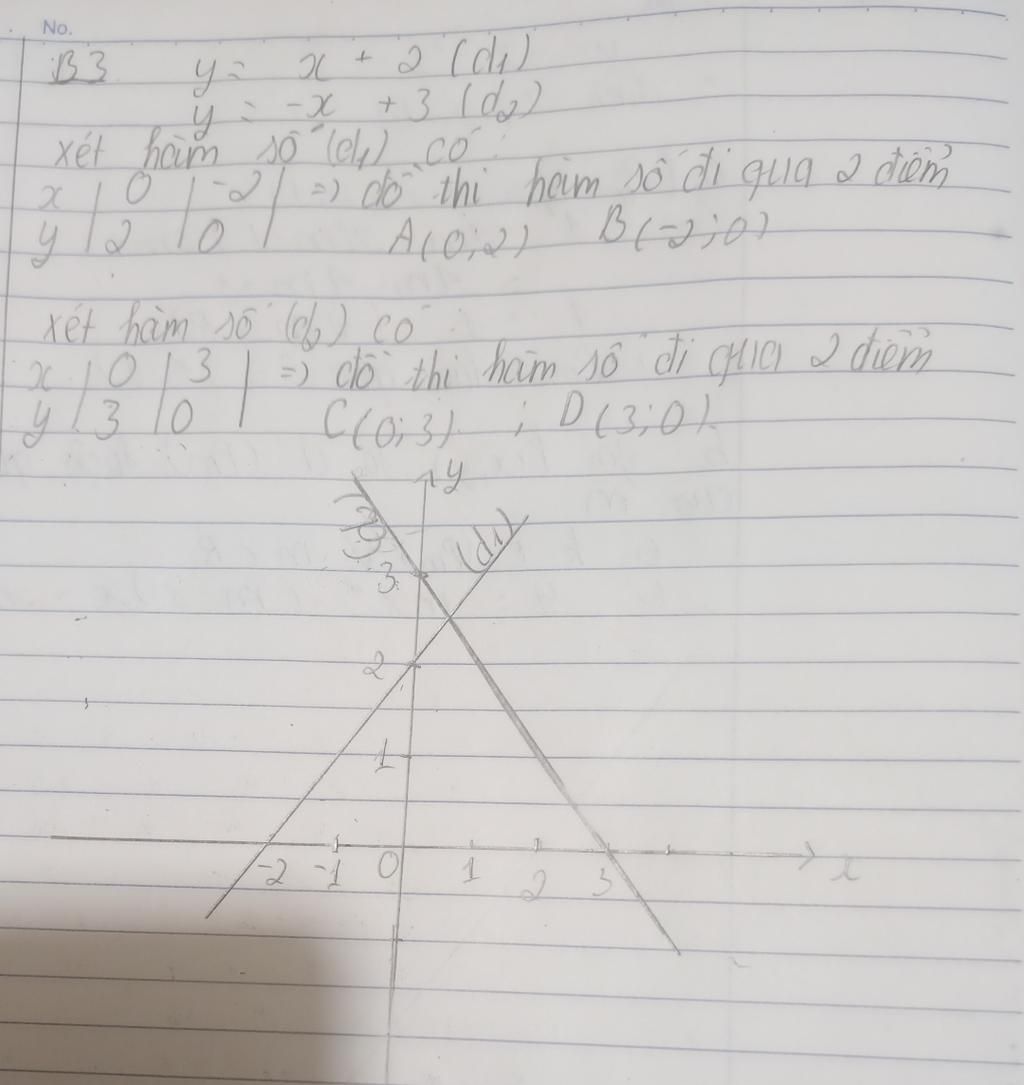 No.
B3 y = x + 2 (d1)
y = -x + 3 (d2)
xét hàm số (d1) có:
x | 0 | -2 | => đồ thị hàm số đi qua 2 điểm
y | 2 | 0 | A(0;2) B(-2;0)
xét hàm số (d2) có:
x | 0 | 3 | => đồ thị hàm số đi qua 2 điểm
y | 3 | 0 | C(0;3) ; D(3;0)
y
(d2) (d1)
3
2
1
-2 -1 0 1 2 3 x